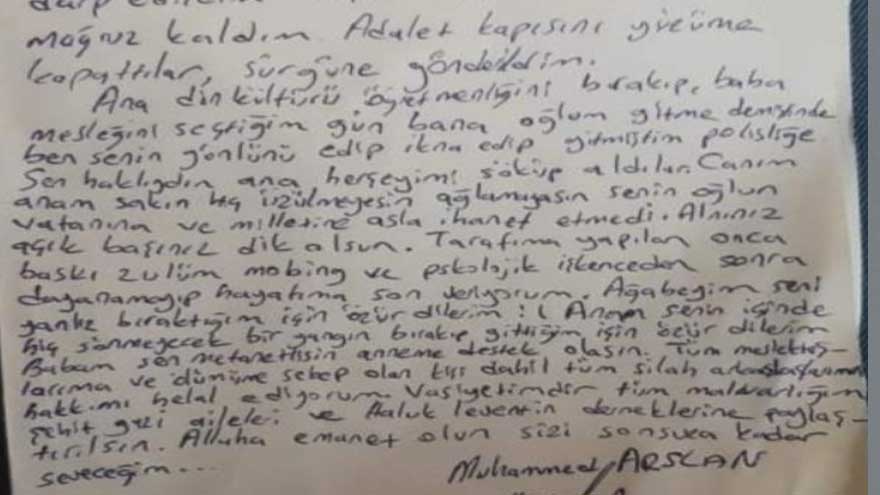 mağruz kaldım. Adalet kapısını yüzüme
kapattılar, sürgüne gönderildim.
Ana din kültürü öğretmenliğini bırakıp, baba
mesleğini seçtiğim gün bana oğlum gitme demiştinde
ben senin gönlünü edip ikna edip gitmiştim polisliğe
Sen haklıydın ana herşeyimi söküp aldılar. Canım
anam sakın hiç üzülmeyesin ağlamayasın senin oğlun
vatanına ve milletine asla ihanet etmedi. Alnınız
açık başınız dik olsun. Tarafıma yapılan onca
baskı zulüm mobing ve pskolojik işkenceden sonra
dayanamayıp hayatıma son veriyorum. Ağabeyim seni
yanlız bıraktığım için özür dilerim :( Anam senin içinde
hiç sönmeyecek bir yangın bırakıp gittiğim için özür dilerim
Babam sen metanetlisin anneme destek olasın. Tüm meslektaş-
larıma ve ölümüme sebep olan kişi dahil tüm silah arkadaşlarıma
hakkımı helal ediyorum. Vasiyetimdir tüm malvarlığım
şehit gazi aileleri ve Haluk leventin derneklerine paylaş-
tırılsın. Allaha emanet olun sizi sonsuza kadar
seveceğim...
Muhammed ARSLAN